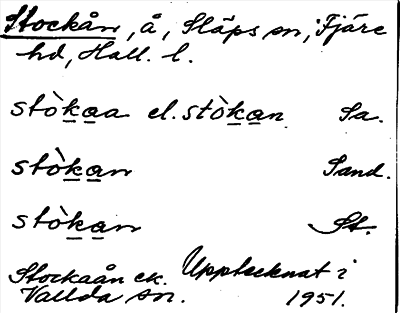 Stockån, å, Släps sn, Fjäre
hd, Hall. l.
stòkaa el. stòkan Sa.
stòkan Sand.
stòkan St.
Stockaån ek. Upptecknat i
Vallda sn. 1951.